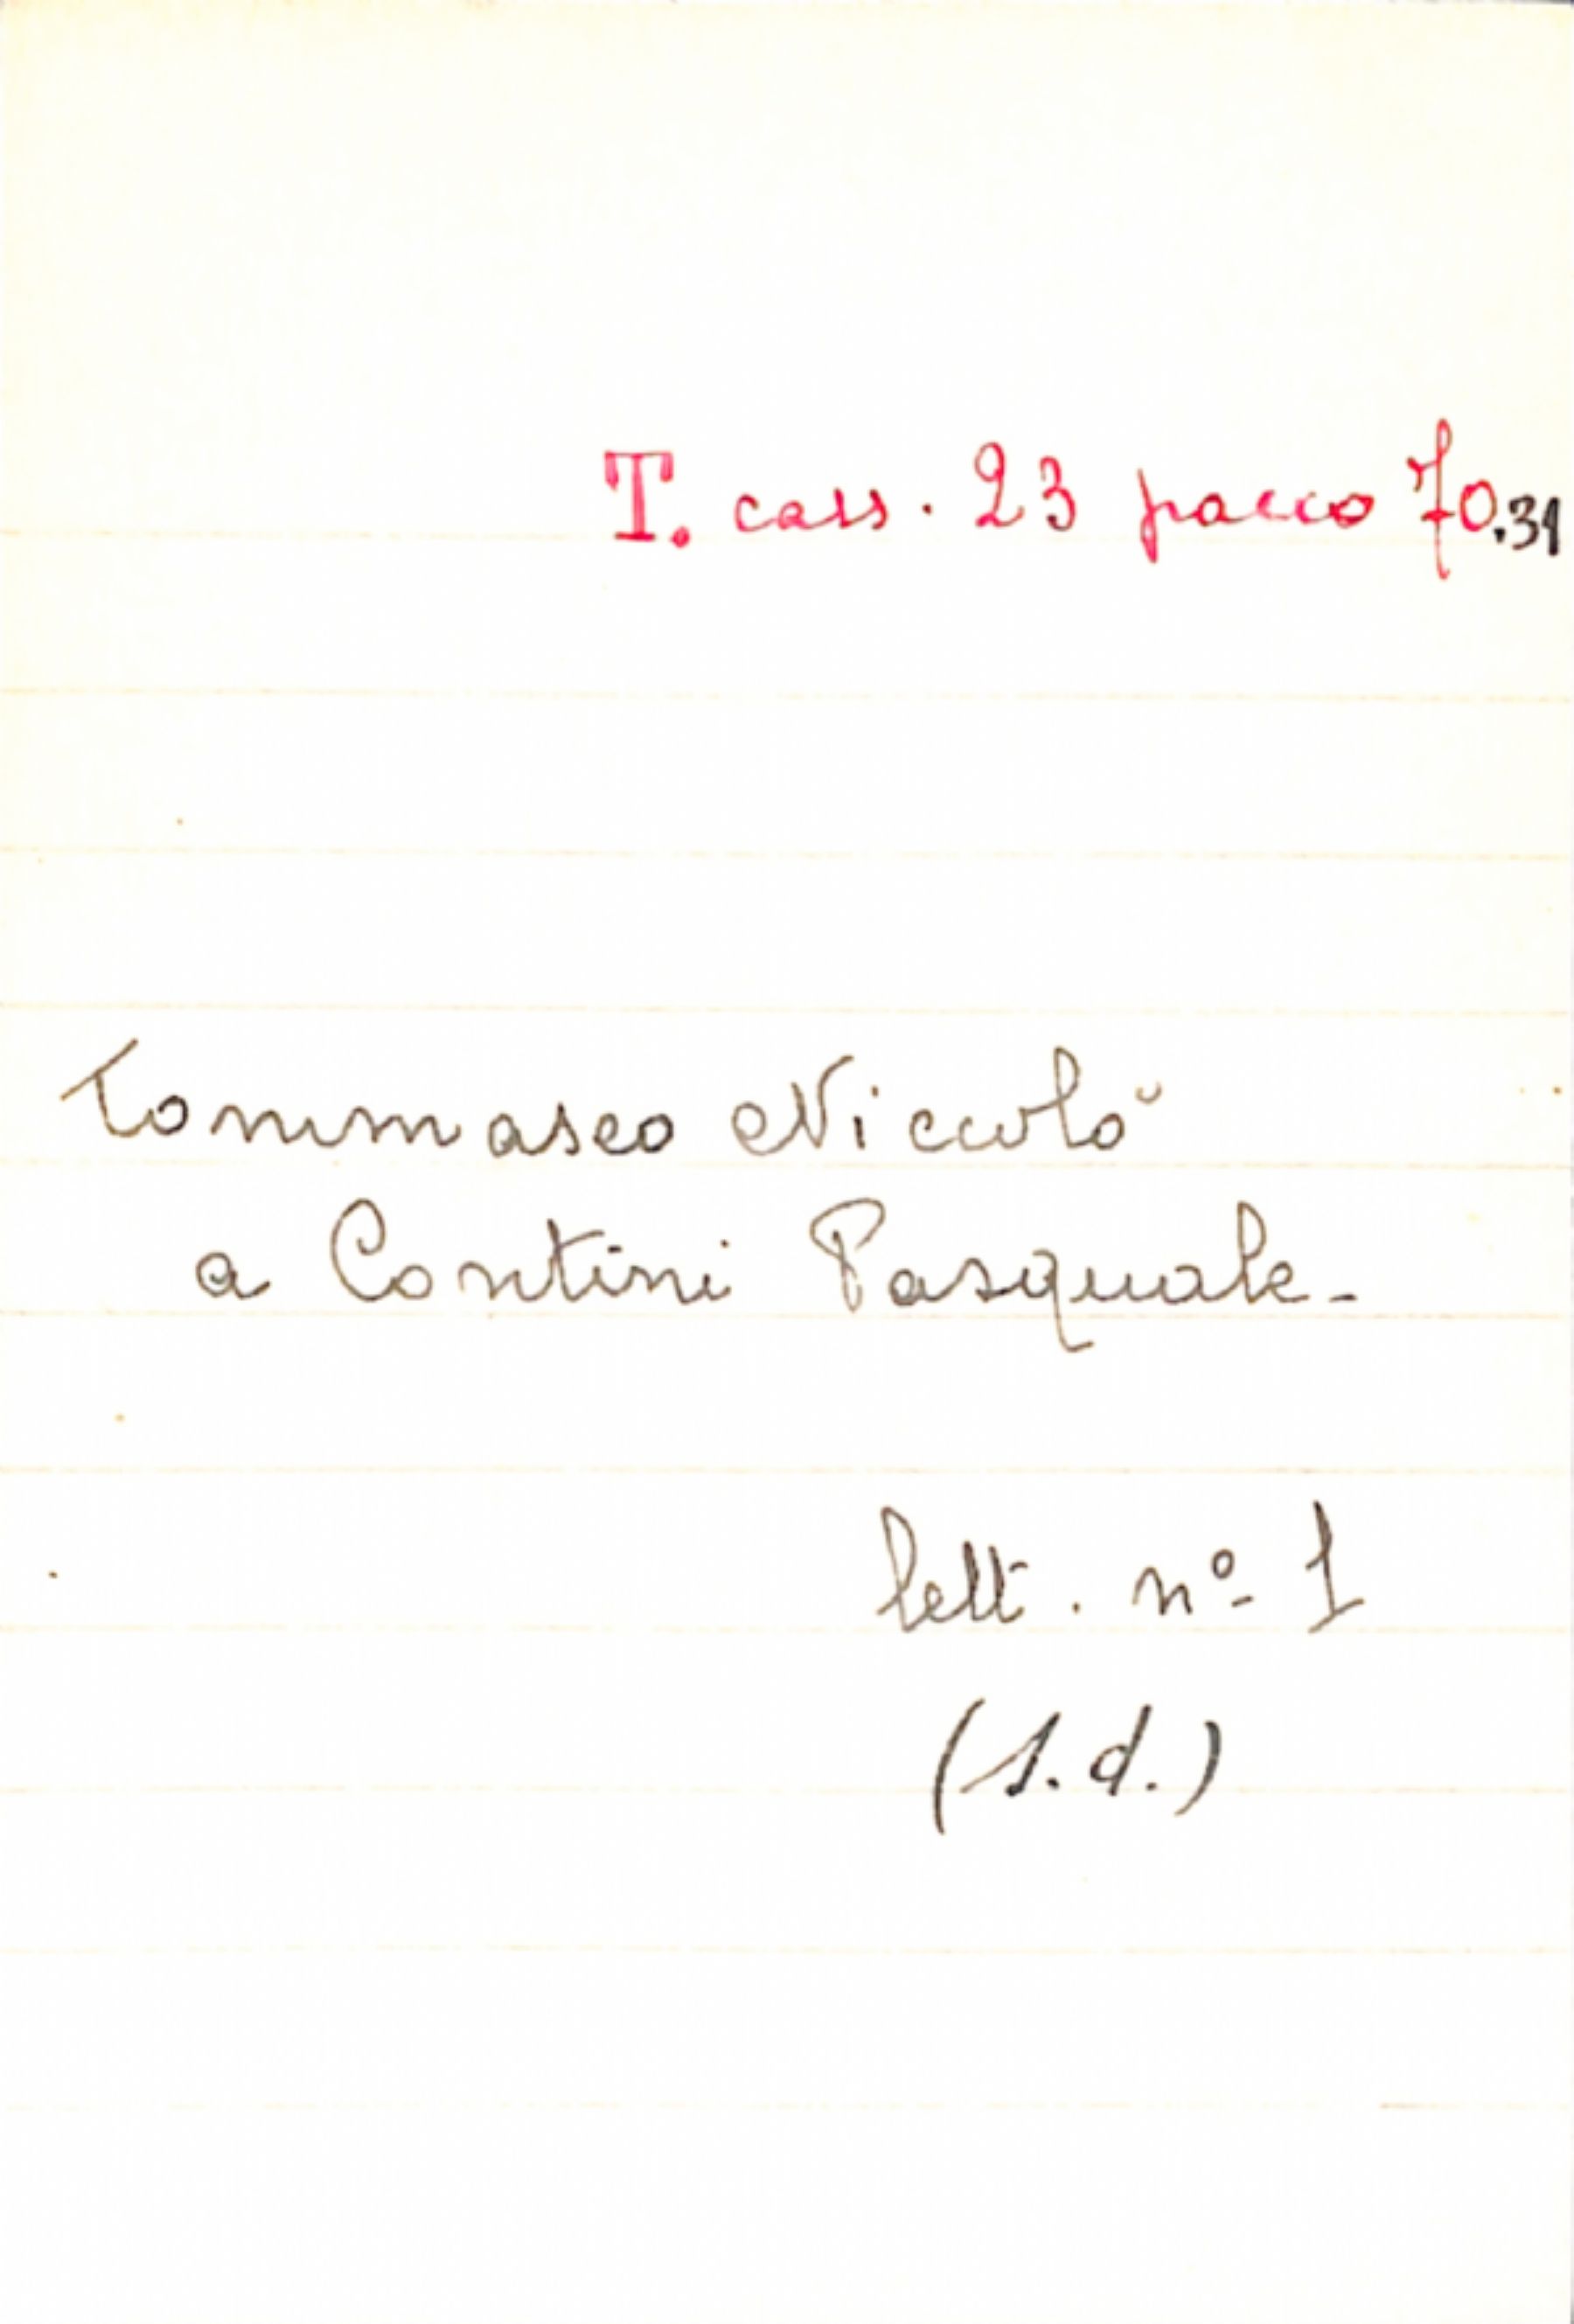 T. cass. 23 pacco 70.31
Tommaseo Niccolò
a Contini Pasquale -
lett. nº 1
(s.d.)